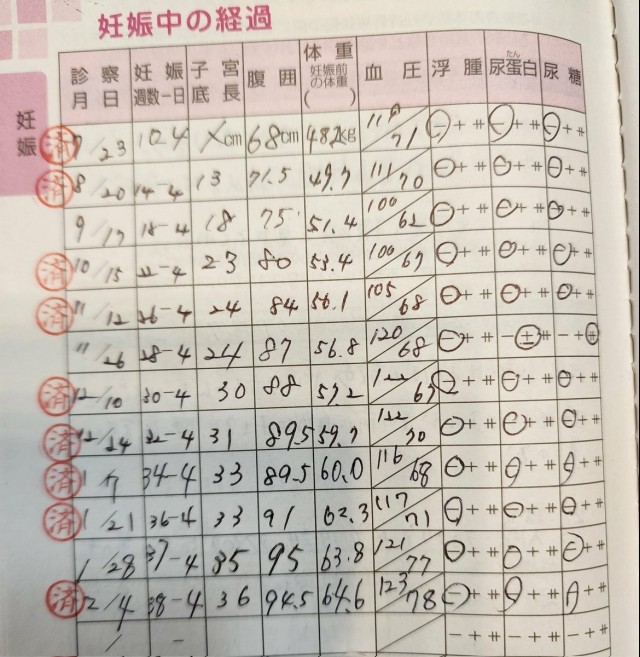 妊娠中の経過
妊娠
診察月日 妊娠週数一日 子宮底長 腹囲 体重 妊娠前の体重 ( ) 血圧 浮腫 尿蛋白 たん 尿糖
済 7/23 10 4 cm 68cm 48.2kg /71 - + ⧺ - + ⧺ - + ⧺
済 8/20 14-4 13 71.5 49.7 111/70 - + ⧺ - + ⧺ - + ⧺
9/17 18-4 18 75 51.4 100/62 - + ⧺ - + ⧺ - + ⧺
済 10/15 22-4 23 80 53.4 100/67 - + ⧺ - + ⧺ - + ⧺
済 11/12 26-4 24 84 56.1 105/68 - + ⧺ - + ⧺ - + ⧺
11/26 28-4 24 87 56.8 120/68 - + ⧺ - ± ⧺ - + ⧺
済 12/10 30-4 30 88 57.2 122/67 - + ⧺ - + ⧺ - + ⧺
済 12/24 32-4 31 89.5 59.7 122/70 - + ⧺ - + ⧺ - + ⧺
済 1/7 34-4 33 89.5 60.0 116/68 - + ⧺ - + ⧺ - + ⧺
済 1/21 36-4 33 91 62.3 117/71 - + ⧺ - + ⧺ - + ⧺
1/28 37-4 35 95 63.8 121/77 - + ⧺ - + ⧺ - + ⧺
済 2/4 38-4 36 94.5 64.6 123/78 - + ⧺ - + ⧺ - + ⧺
/ - - + ⧺ - + ⧺ - + ⧺